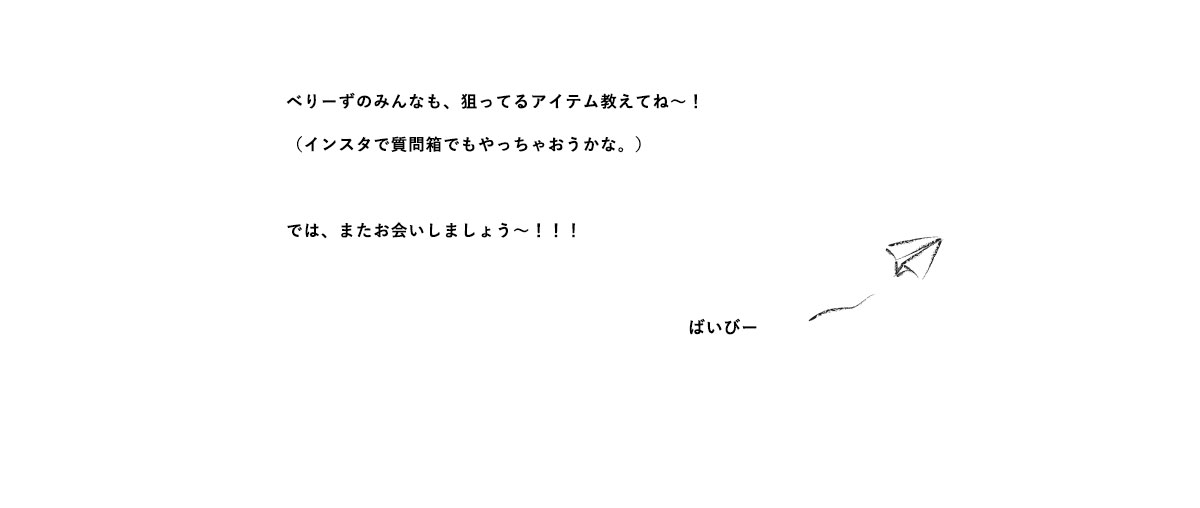 べりーずのみんなも、狙ってるアイテム教えてね〜！
（インスタで質問箱でもやっちゃおうかな。）
では、またお会いしましょう〜！！！
ばいびー